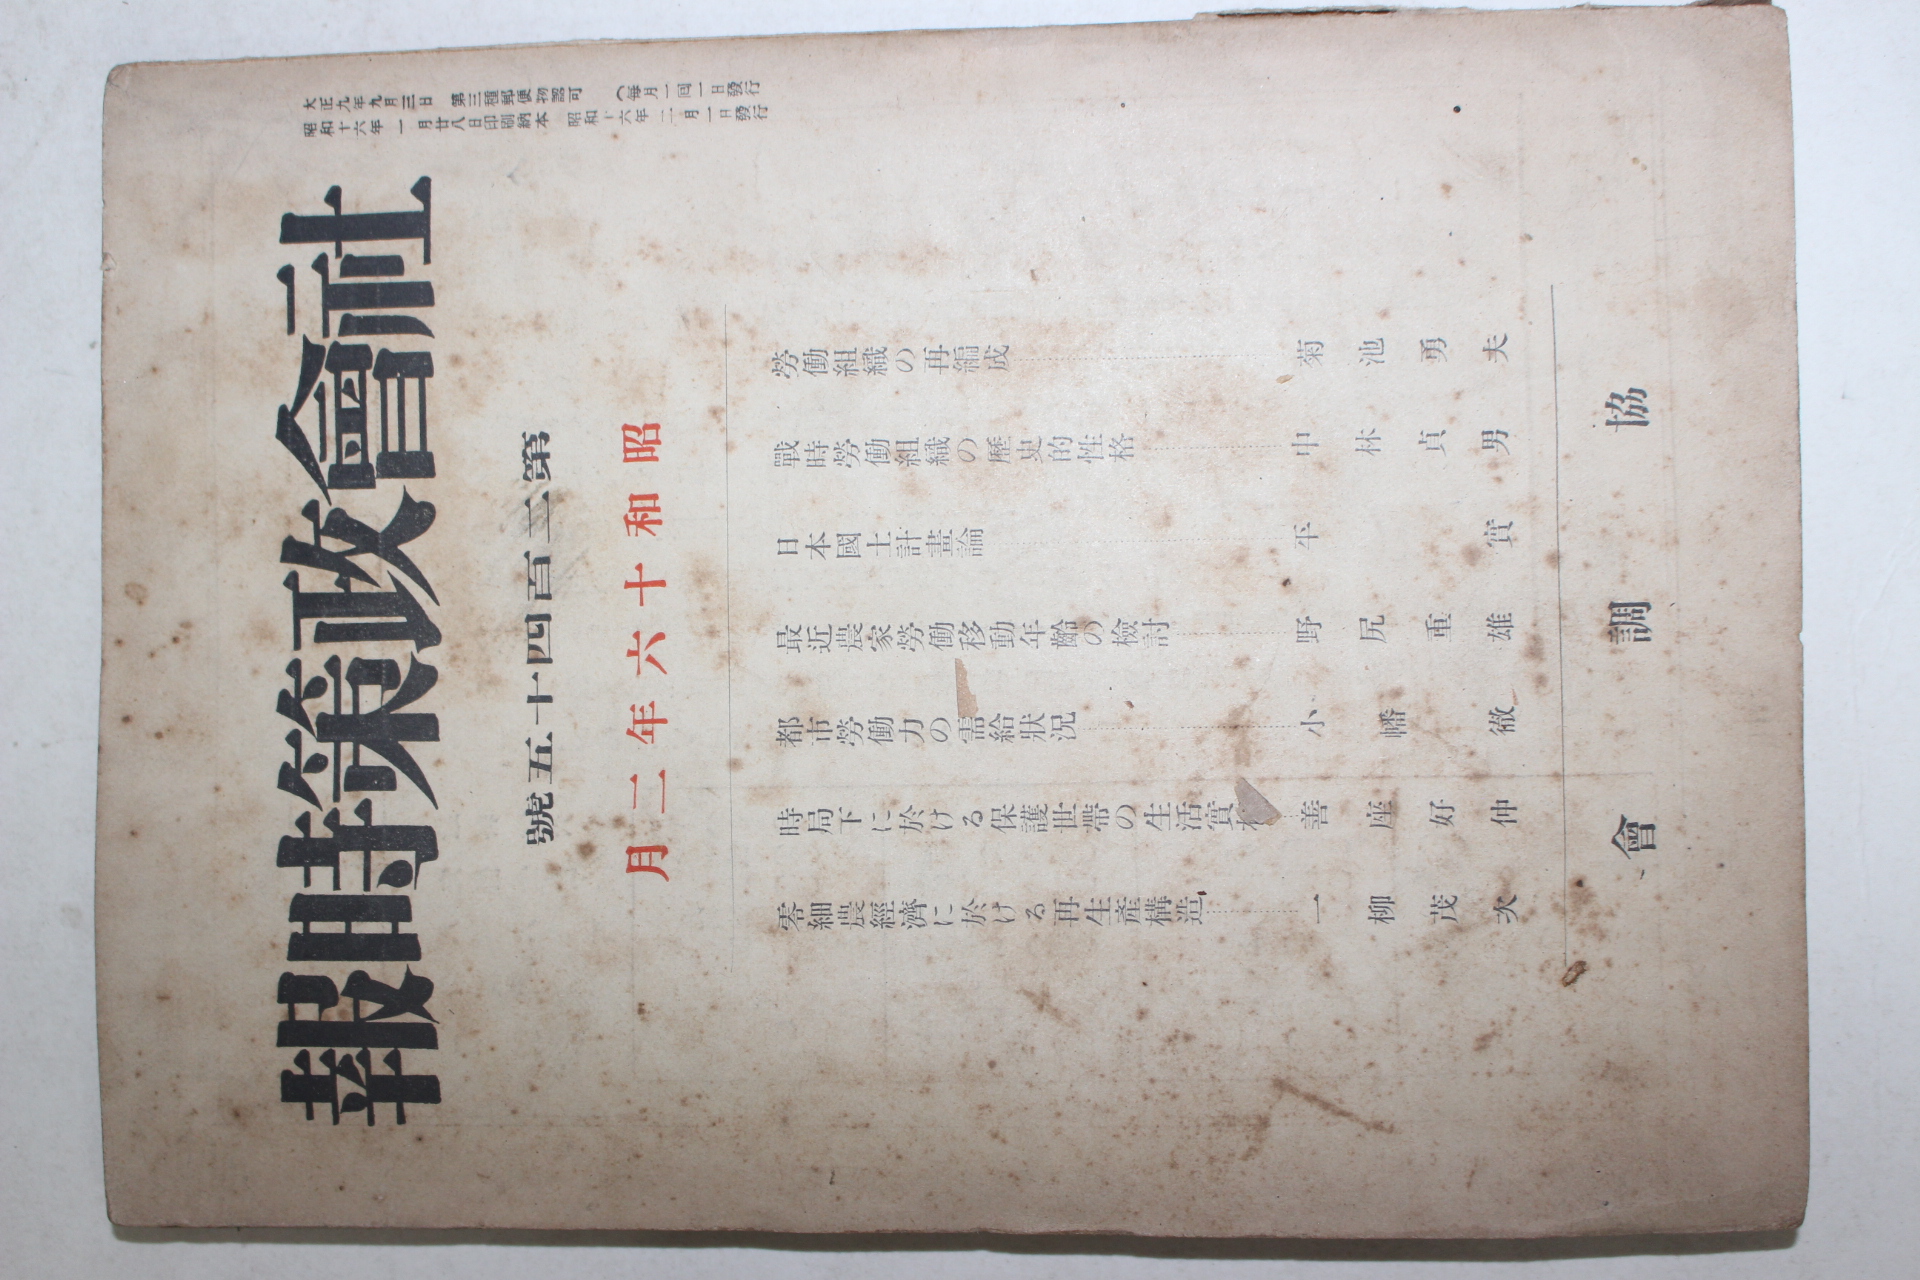 大正九年九月三日 第三種郵便物認可 (毎月一回一日發行
昭和十六年一月廿八日印刷納本 昭和十六年二月一日發行
社會政策時報
第二百四十五號
昭和十六年二月
勞働組織の再編成 菊池勇夫
戰時勞働組織の歷史的性格 中林貞男
日本國土計畫論 平實
最近農家勞働移動年齡の檢討 野尻重雄
都市勞働力の需給狀況 小幡徹
時局下に於ける保護世帶の生活實 善座好仲
零細農經濟に於ける再生產構造 一柳茂次
協調會